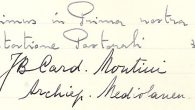 imus in Prima nostra
ortatione Pastorali
JB Card. Montini
Archiep. Mediolanen